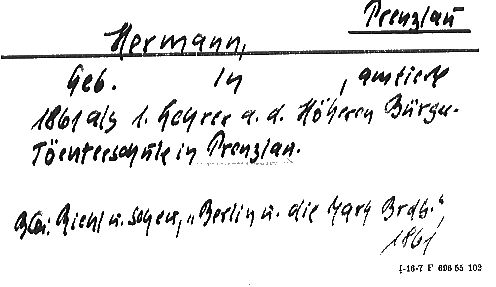 Prenzlau
Hermann,
Geb. in , amtierte
1861 als 1. Lehrer a. d. Höheren Bürger-
Töchterschule in Prenzlau.
Bei: Riehl u. Scheu, „Berlin u. die Mark Brdbg.",
1861
I-16-7 F 696 55 102